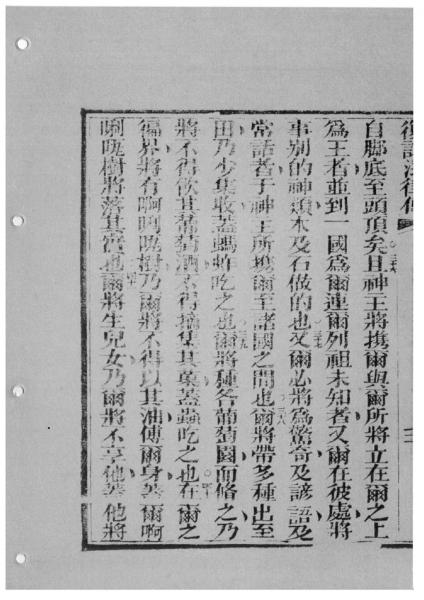 復講法律傳
自脚底至頭頂矣且神王將携爾與爾所將立在爾之上
為王者並到一國為爾連爾列祖未知者又爾在彼處將
事別的神類木及石做的也三七又爾必將為驚奇及諺語及
常話者于神王所携爾至諸國之間也三八爾將帶多種出至
田乃少集收蓋螞蚱吃之也三九爾將種各葡萄園而修之乃
將不得飲其葡萄酒不得摘集其菓蓋蟲吃之也四十在爾之
徧界將有啊唎㕸樹乃爾將不得以其油傅爾身蓋爾啊
唎㕸樹將落其實也四一爾將生兒女乃爾將不享他蓋他將